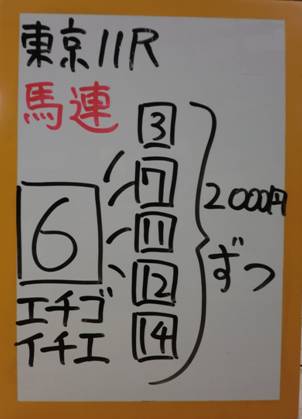 東京11R
馬連
6
エチゴ
イチエ
3
7
11
12
14
2000円
ずつ